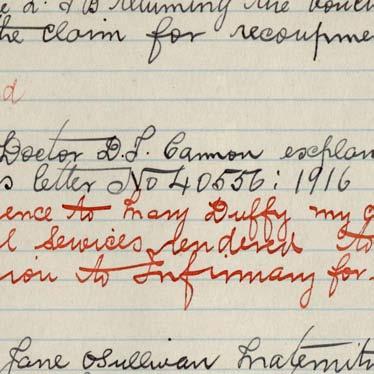 returning the vouch
the claim for recoupme
d
Doctor D. J. Cannon explan
s letter No 40556: 1916
ence to Mary Duffy my
l services rendered to
sion to Infirmary for.
Jane O'Sullivan Maternit